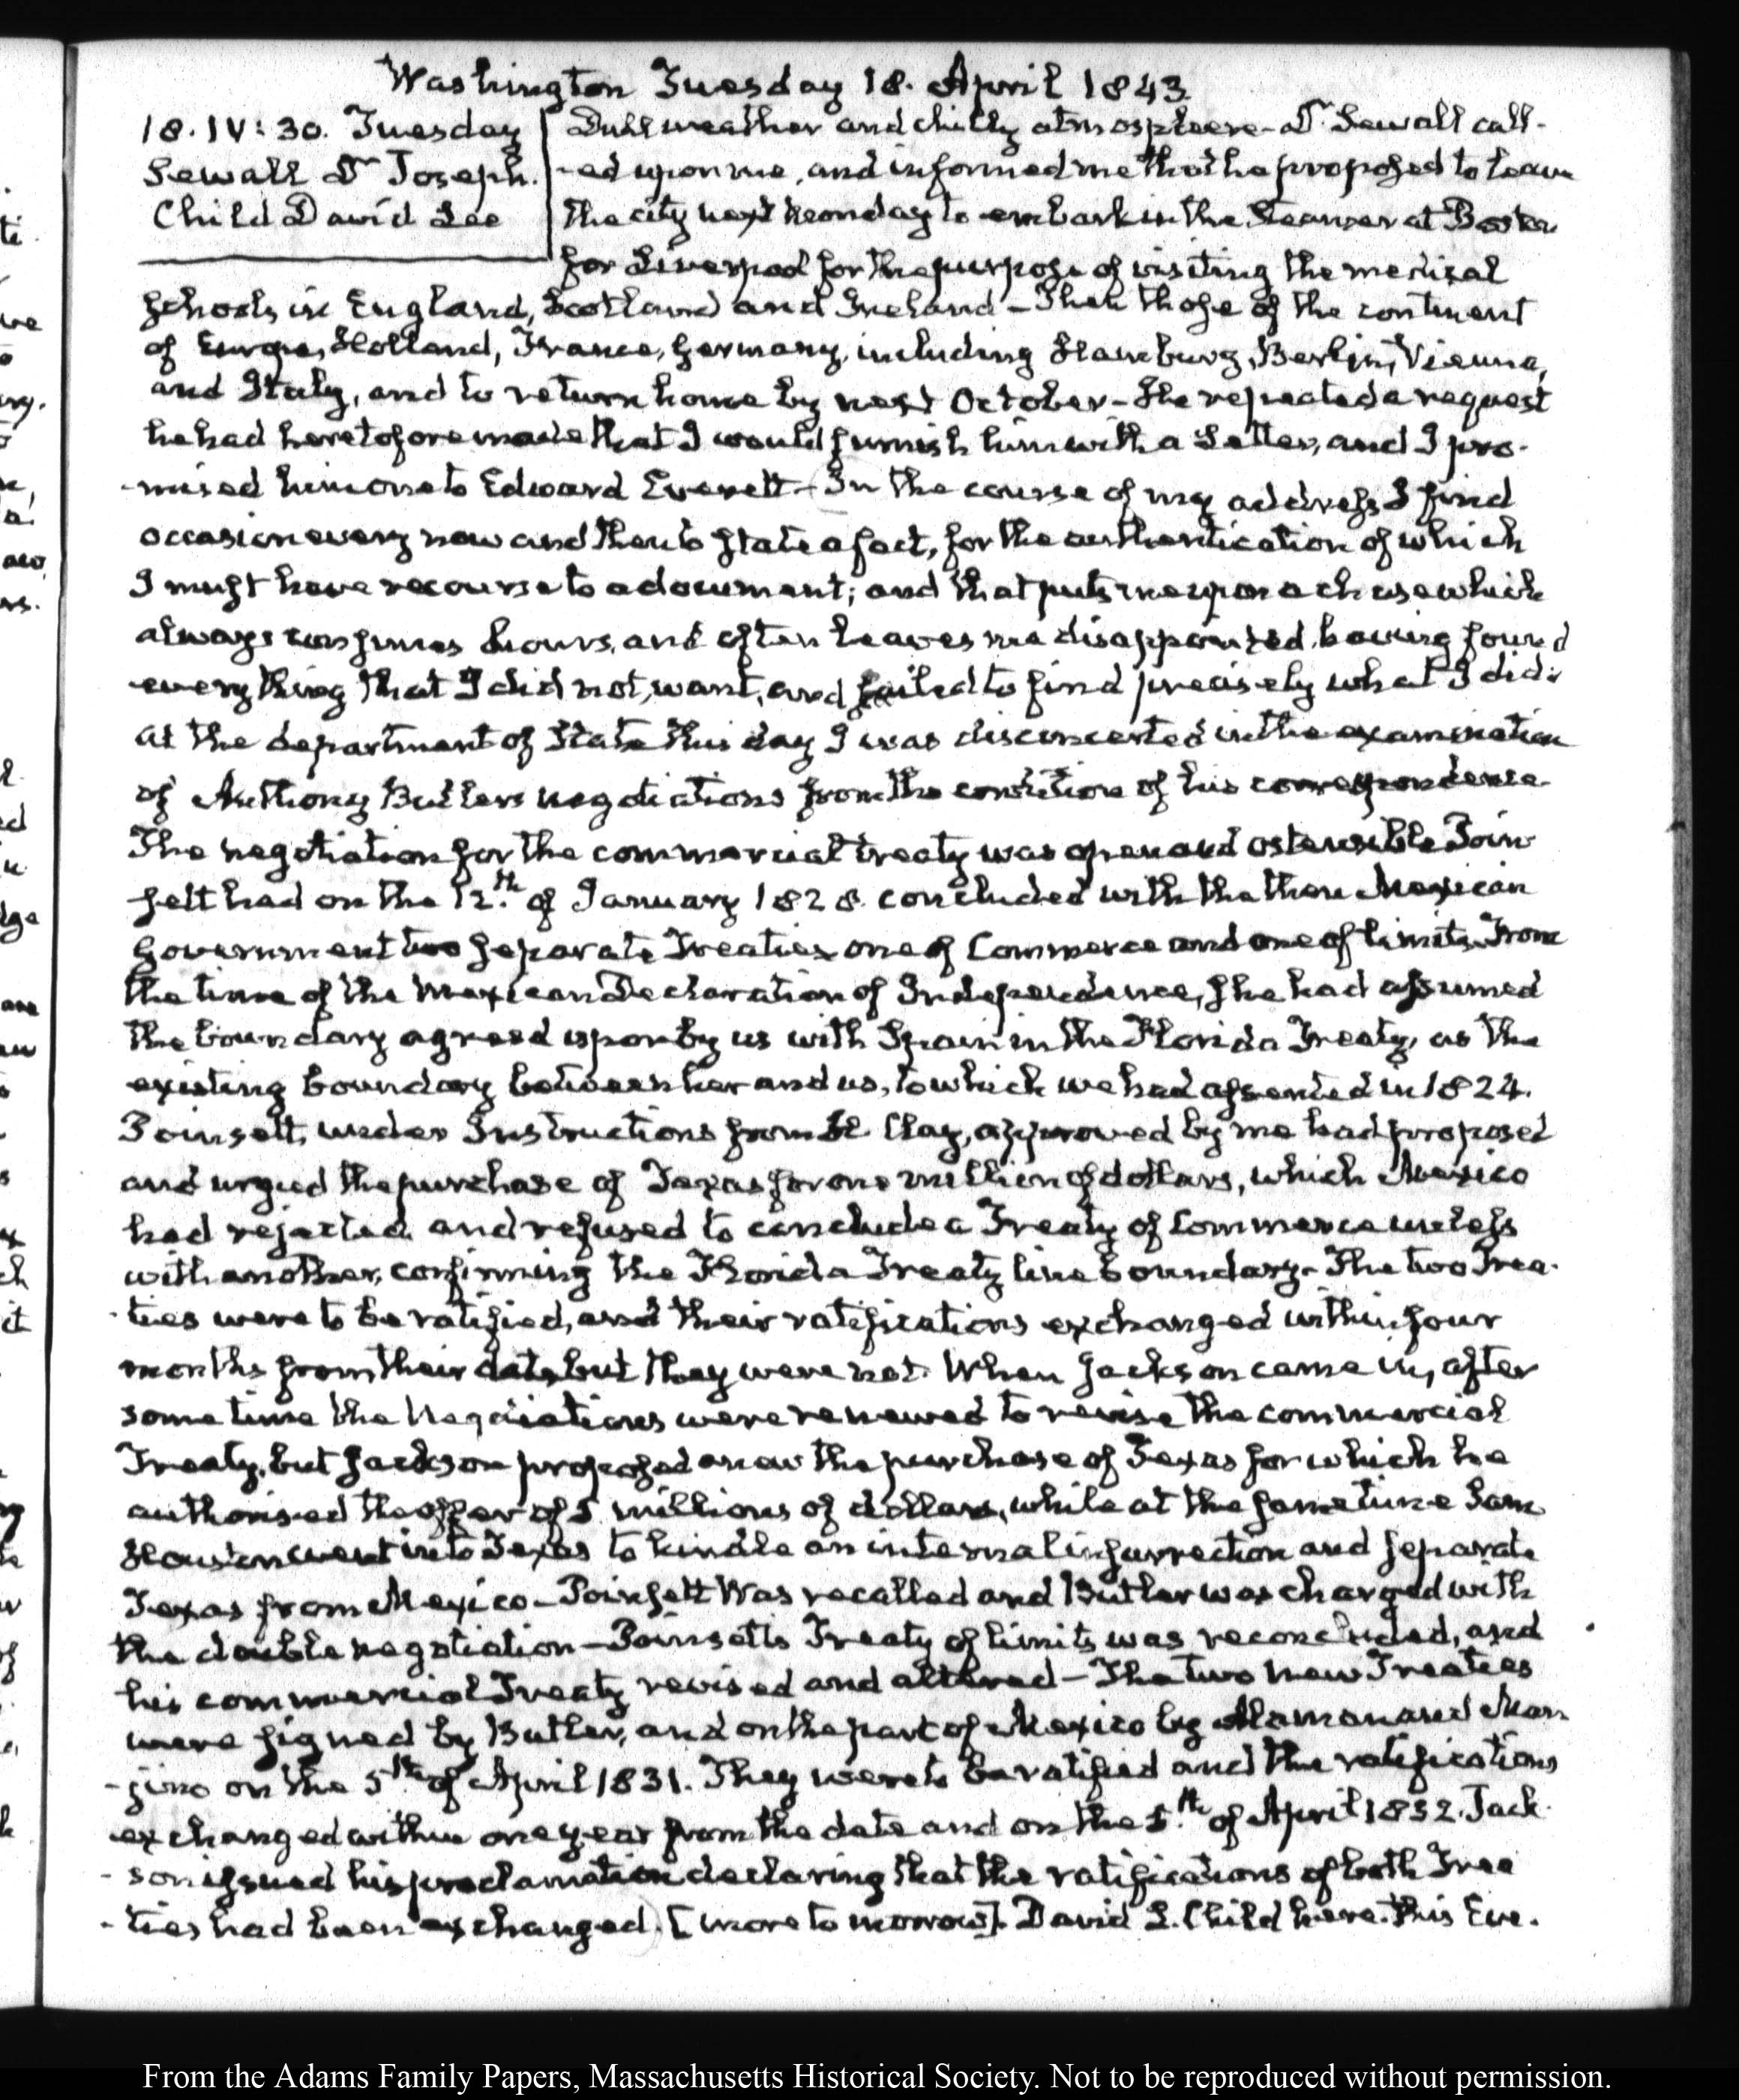 Washington Tuesday 18. April 1843.
18. IV: 30. Tuesday
Sewall Dr Joseph.
Child David Lee
Dull weather and chilly atmosphere - Dr. Sewall call-
-ed upon me, and informed me that he proposed to leave
the city next Monday to embark in the Steamer at Boston
for Liverpool for the purpose of visiting the medical
schools in England, Scotland and Ireland - Then those of the continent
of Europe, Holland, France, Germany, including Hamburg, Berlin, Vienna,
and Italy, and to return home by next October - He repeated a request
he had heretofore made that I would furnish him with a Letter, and I pro-
-mised him one to Edward Everett - In the course of my address I find
occasion every now and then to state a fact, for the authentication of which
I must have recourse to a document; and that puts me upon a chase which
always consumes hours, and often leaves me disappointed, having found
every thing that I did not want, and failed to find precisely what I did.
At the department of State this day I was disconcerted in the examination
of Anthony Butlers negotiations from the condition of his correspondence.
The negotiation for the commercial treaty was open and ostensible Poin-
sett had on the 12.th of January 1828. concluded with the then Mexican
Government two separate Treaties one of Commerce and one of limits. From
the time of the Mexican Declaration of Independence, she had assumed
the boundary agreed upon by us with Spain in the Florida Treaty, as the
existing boundary between her and us, to which we had assented in 1824.
Poinsett, under Instructions from H. Clay, approved by me had proposed
and urged the purchase of Texas for one million of dollars, which Mexico
had rejected and refused to conclude a Treaty of Commerce unless
with another, confirming the Florida Treaty line boundary - The two Trea-
-ties were to be ratified, and their ratifications exchanged within four
months from their date, but they were not. When Jackson came in, after
some time the Negotiations were renewed to revise the commercial
Treaty, but Jackson proposed anew the purchase of Texas for which he
authorised the offer of 5 millions of dollars, while at the same time Sam
Houston went into Texas to kindle an internal insurrection and separate
Texas from Mexico - Poinsett was recalled and Butler was charged with
the double negotiation - Poinsetts Treaty of limits was reconcluded, and
his commercial Treaty revised and altered - The two new Treaties
were signed by Butler, and on the part of Mexico by Alaman and Man-
-gino on the 5th of April 1831. They were to be ratified and the ratifications
exchanged within one year from the date and on the 5.th of April 1832. Jack-
-son issued his proclamation declaring that the ratifications of both Trea
-ties had been exchanged. [more to morrow]. David L. Child here this Eve.
From the Adams Family Papers, Massachusetts Historical Society. Not to be reproduced without permission.